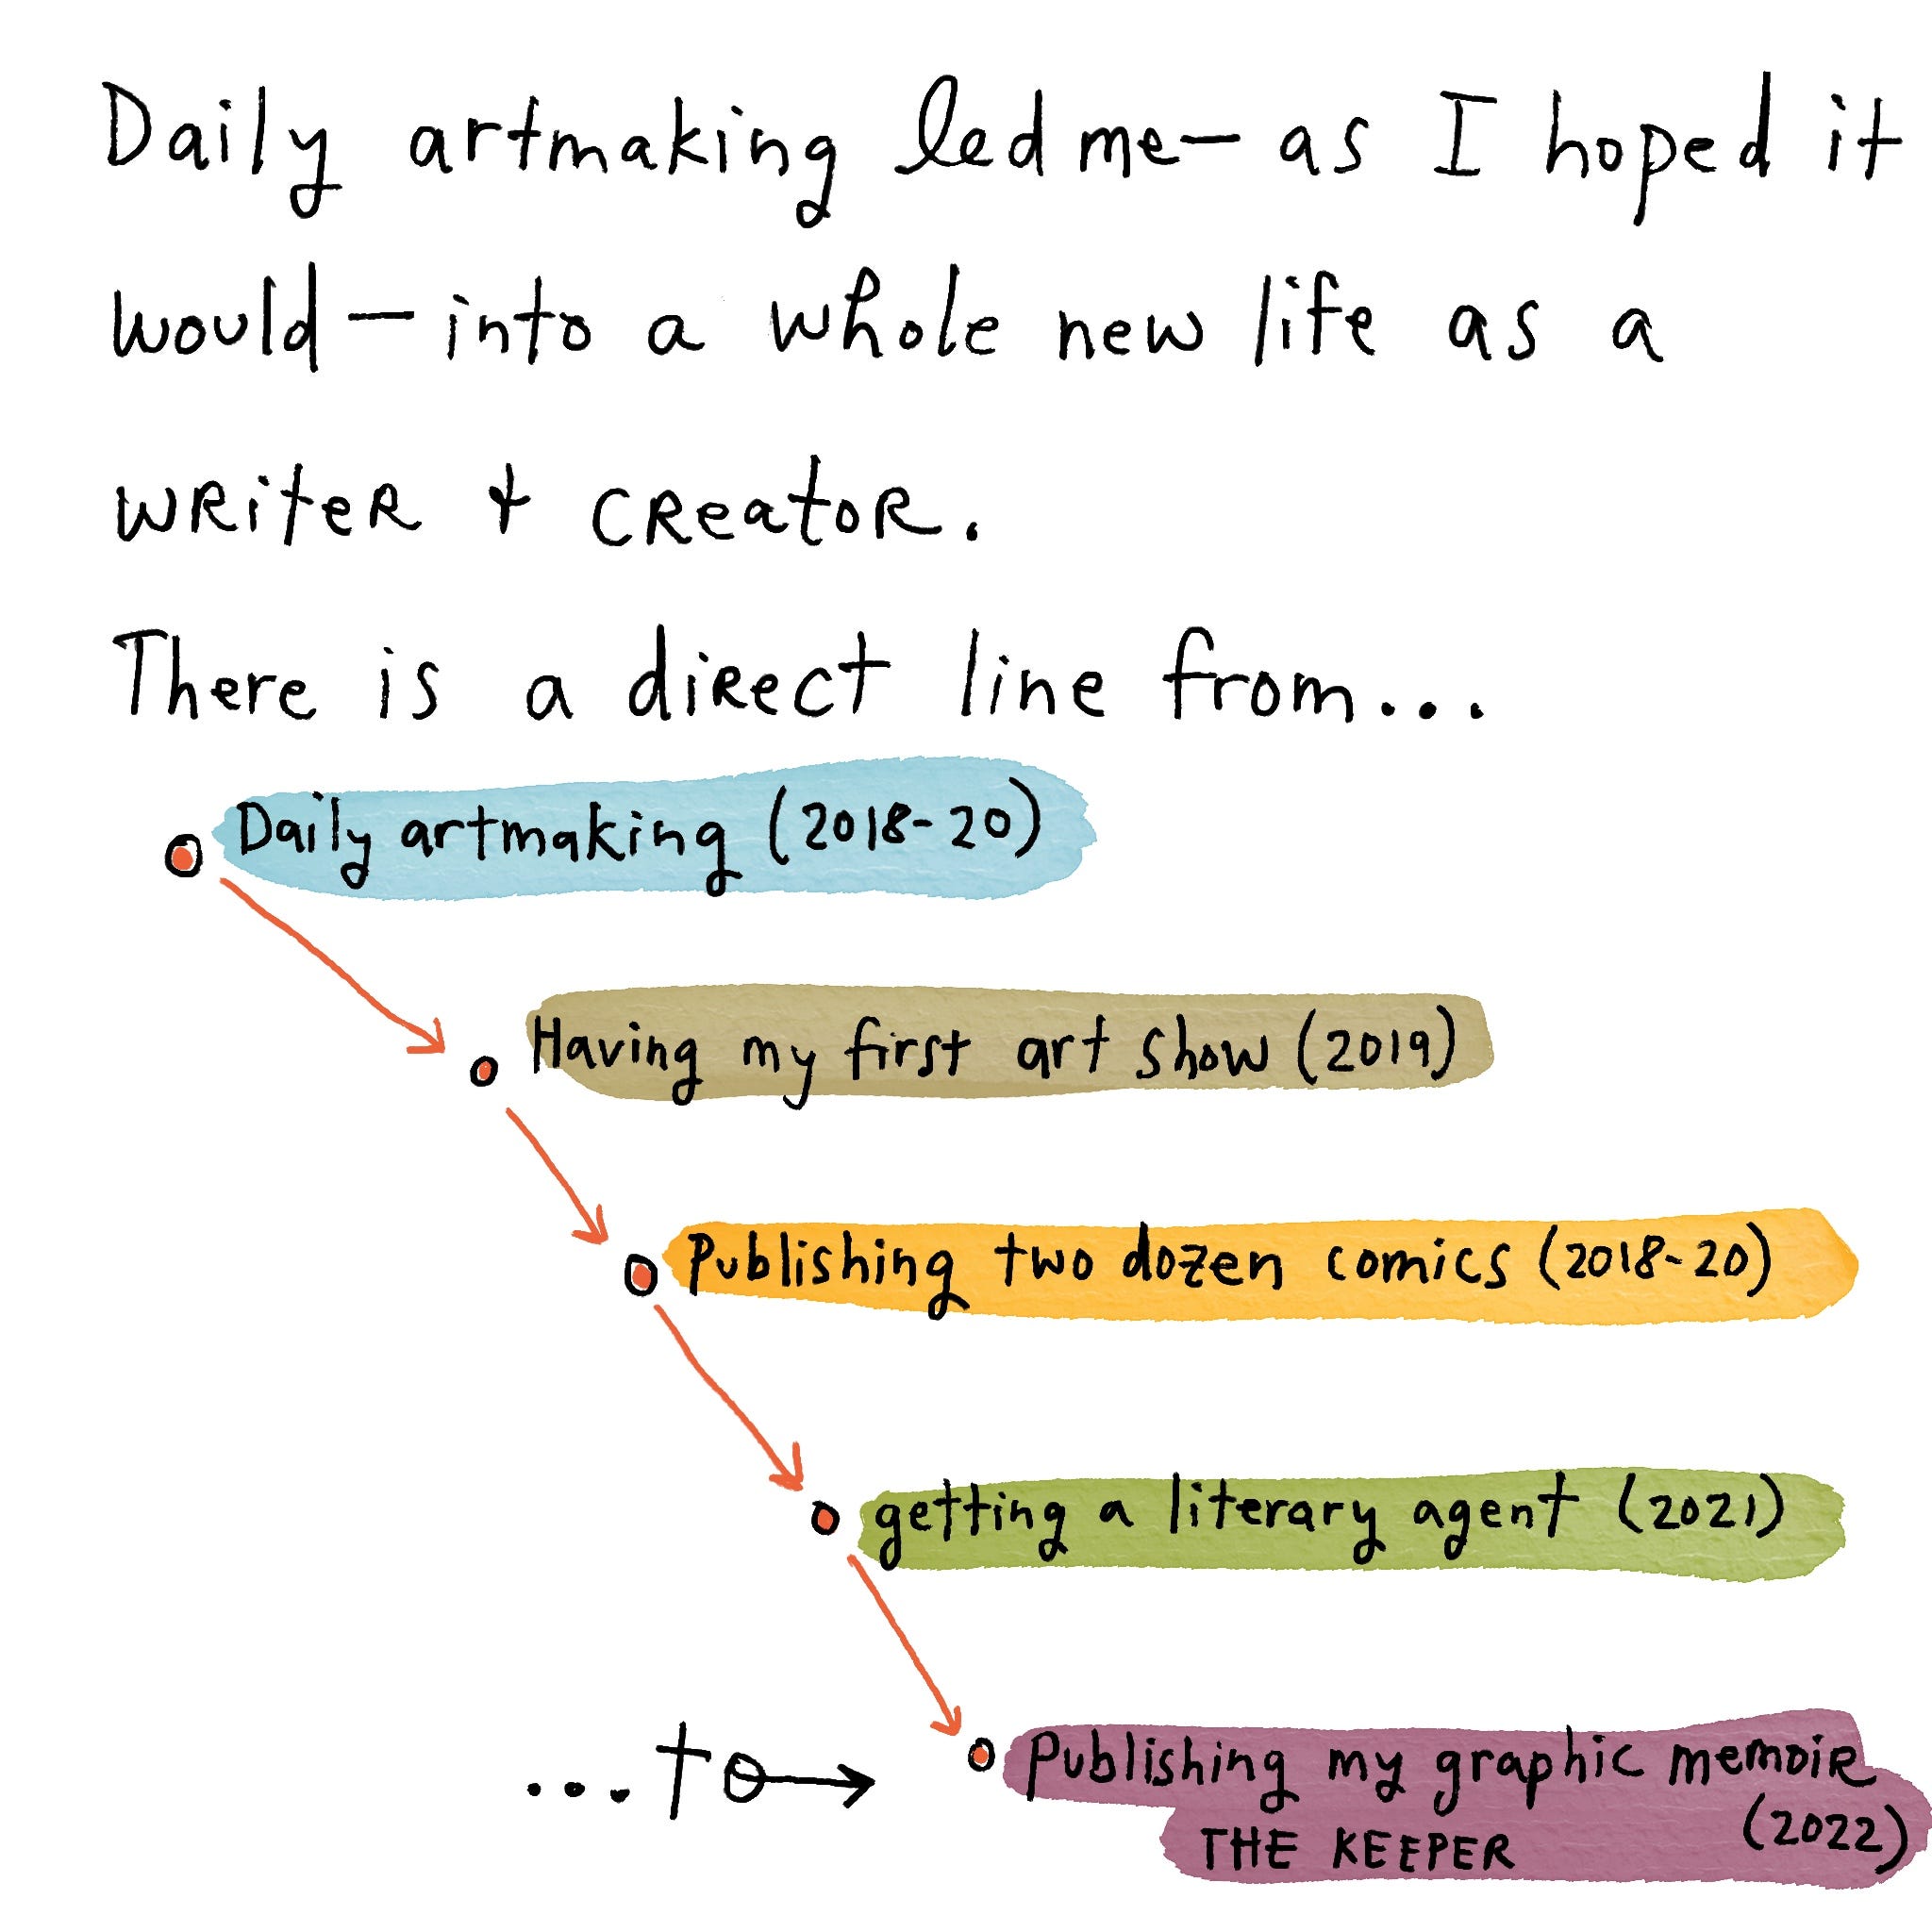 Daily artmaking led me— as I hoped it
would — into a whole new life as a
writer + creator.
There is a direct line from...
Daily artmaking (2018-20)
Having my first art show (2019)
Publishing two dozen comics (2018-20)
getting a literary agent (2021)
...to
Publishing my graphic memoir
THE KEEPER (2022)